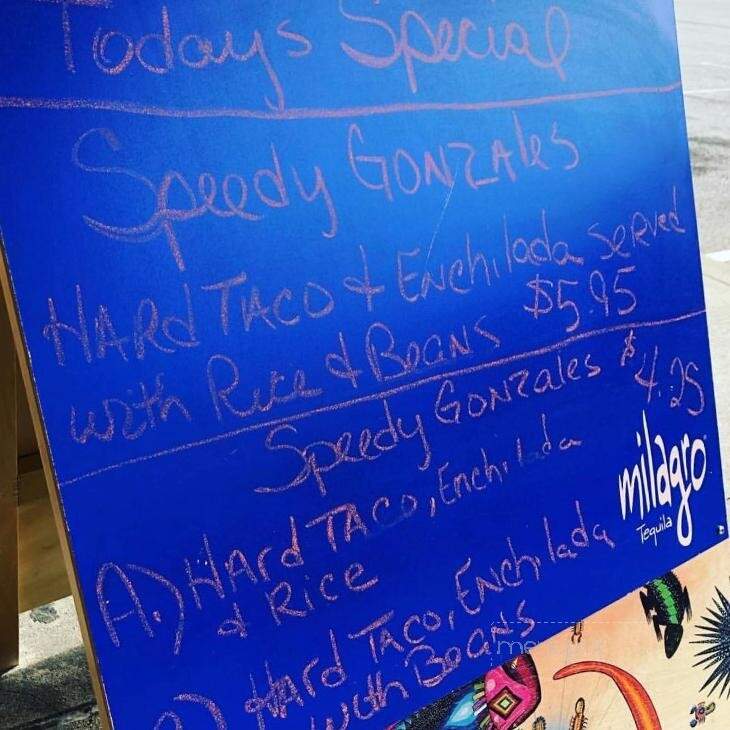 Todays Special
Speedy GONZAles
HARd TACO & Enchilada served
with Rice & Beans $5.95
Speedy Gonzales $4.25
A.) HARd TACO, Enchilada
& Rice
Hard Taco, Enchilada
with Beans
milagro
Tequila